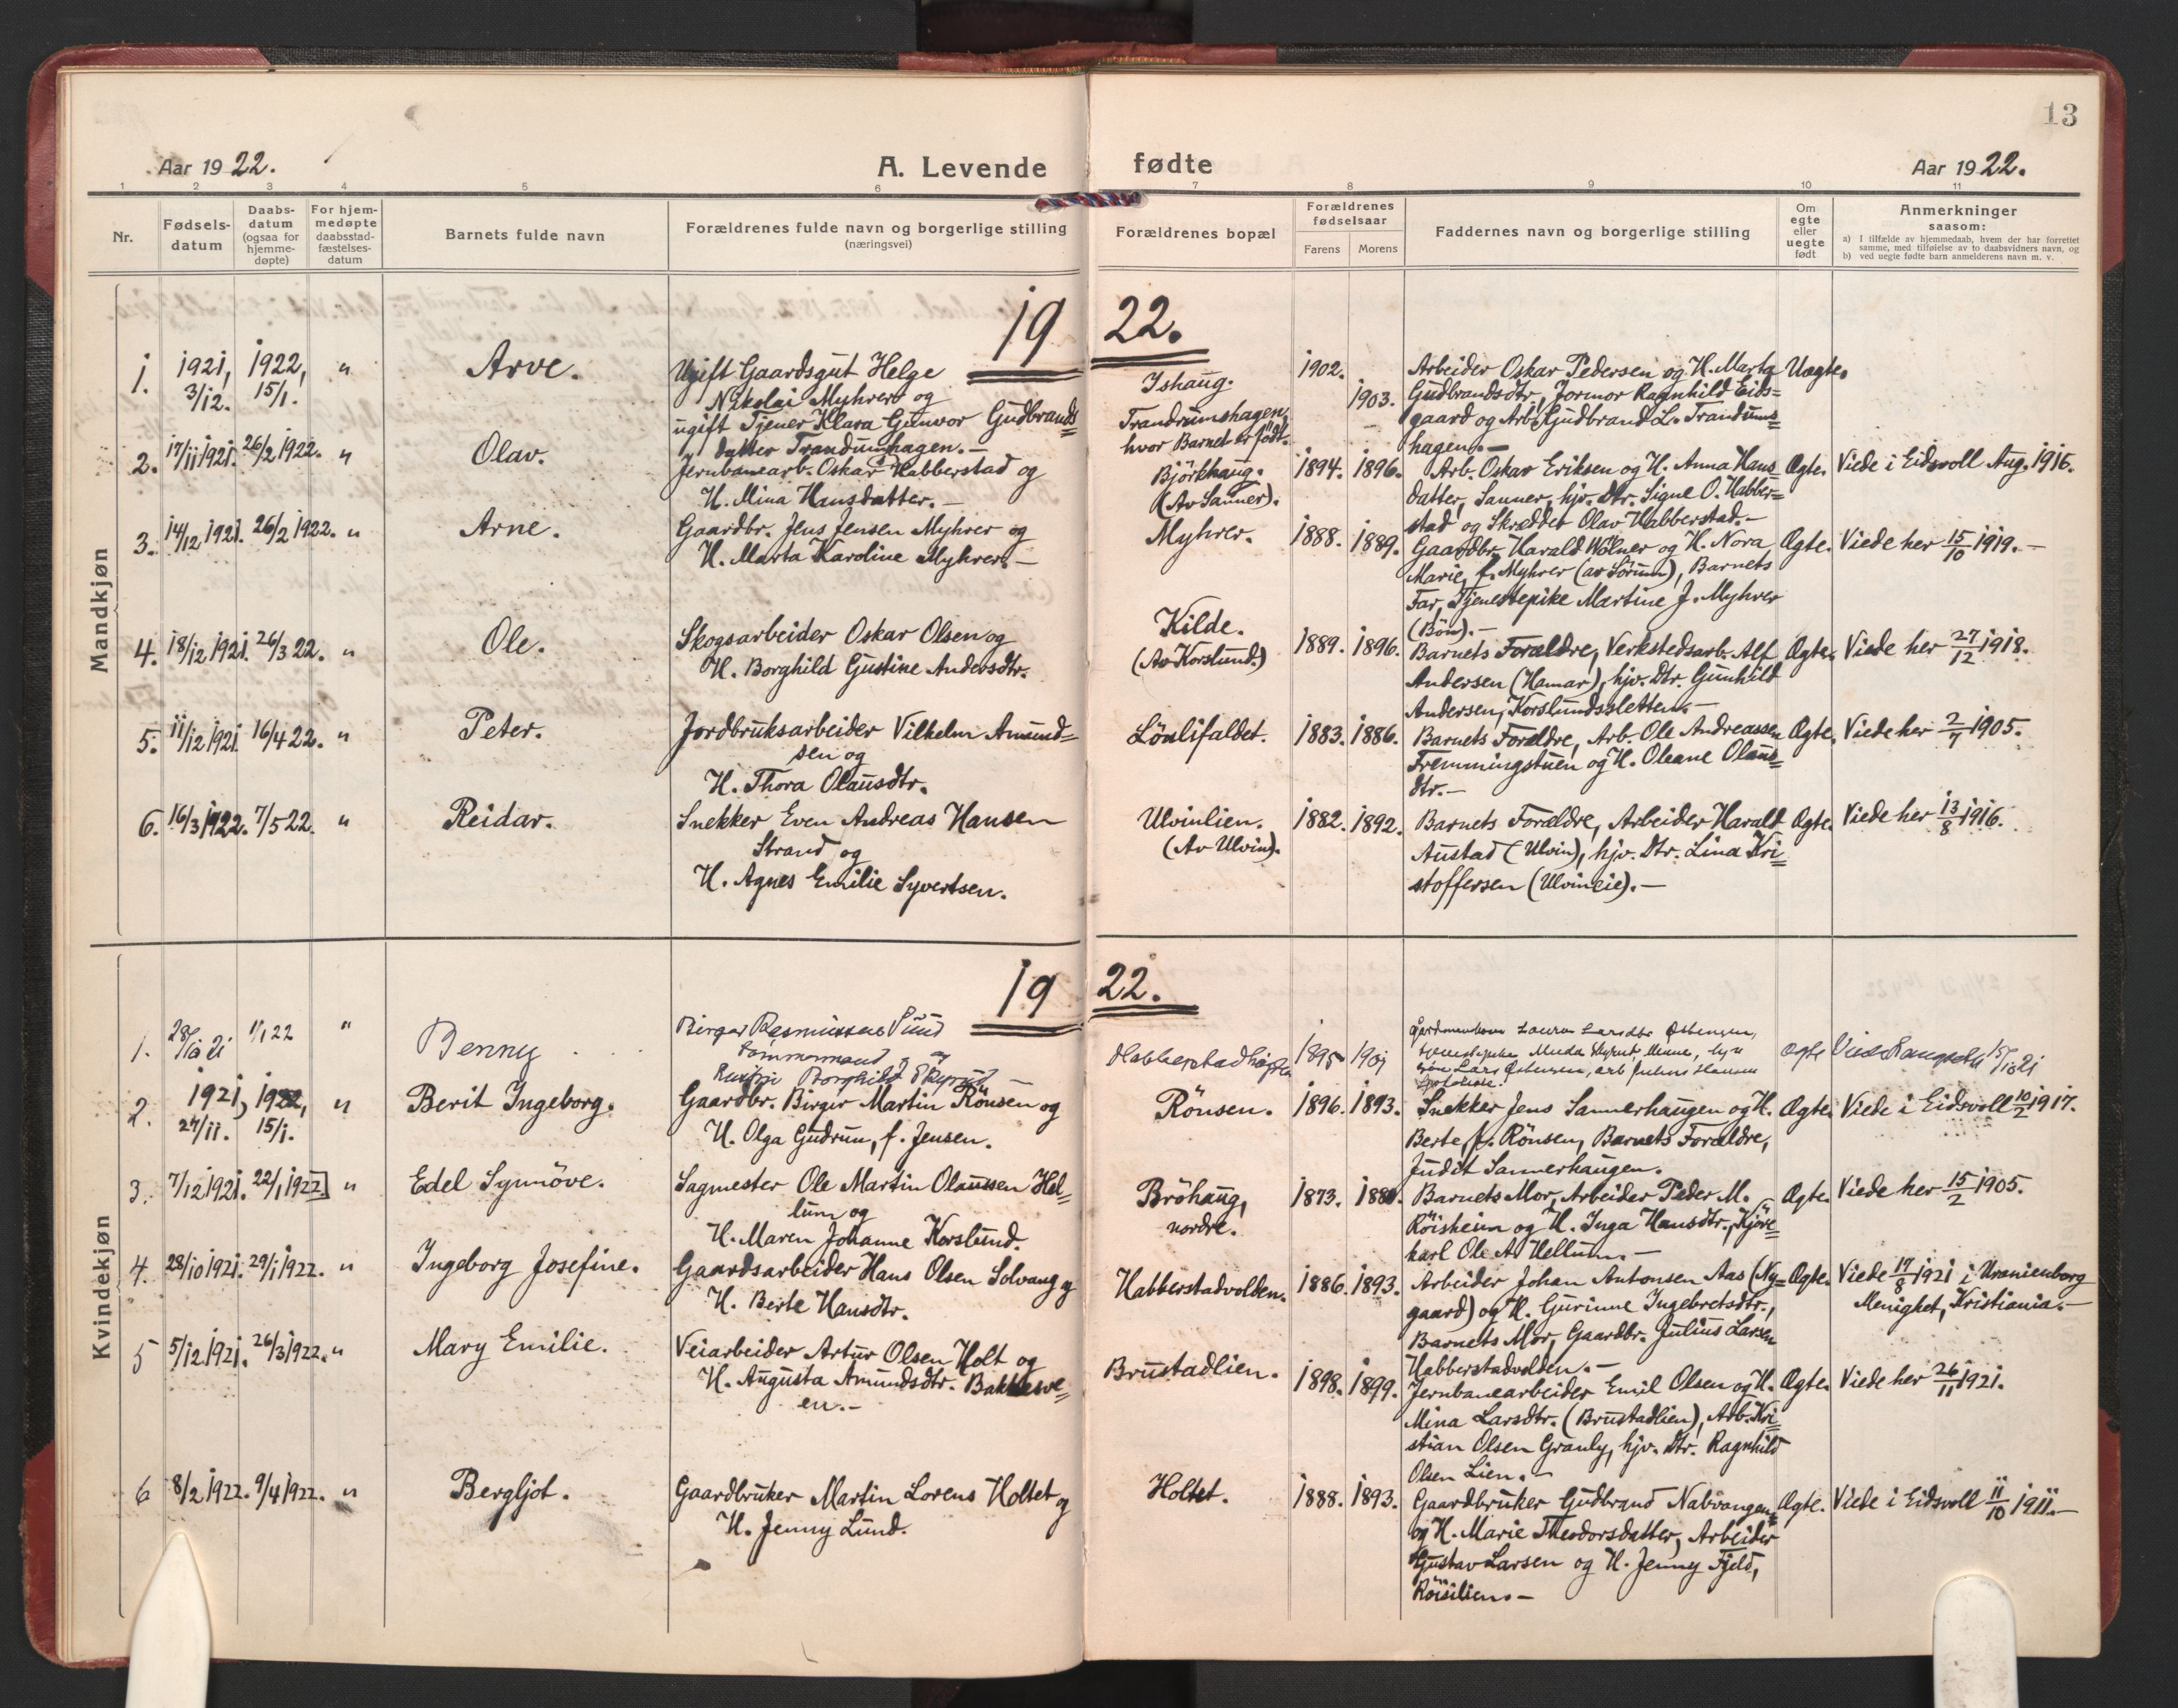 13
Aar 1922.
A. Levende fødte
Aar 1922.
1 2 3 4 5 6 7 8 9 10 11
Nr.
Fødsels-
datum
Daabs-
datum
(ogsaa for
hjemme-
døpte)
For hjem-
medøpte
daabsstad-
fæstelses-
datum
Barnets fulde navn
Forældrenes fulde navn og borgerlige stilling
(næringsvei)
Forældrenes bopæl
Forældrenes
fødselsaar
Farens Morens
Faddernes navn og borgerlige stilling
Om
egte
eller
uegte
født
Anmerkninger
saasom:
a) I tilfælde av hjemmedaab, hvem der har forrettet
samme, med tilføielse av to daabsvidners navn, og
b) ved uegte fødte barn anmelderens navn m. v.
Mandkjøn
1922.
1. 1921, 3/12. 1922, 15/1. " Arve.
Ugift Gaardsgut Helge
Nikolai Myhrer og
ugift Tjener Klara Gunvor Gudbrands=
datter Trandumhagen.-
Ishaug.
Trandrumshagen,
hvor Barnet er født.
1902. 1903.
Arbeider Oskar Pedersen og H. Marta
Gudbrandsdtr., Jormor Ragnhild Eids=
gaard og Arb. Gudbrand L. Trandums=
hagen.-
Uægte.
2. 17/11 1921. 26/2 1922. " Olav.
Jernbanearb. Oskar Habberstad og
H. Mina Hansdatter.-
Björkhaug.
(Av Sanner).
1894. 1896.
Arb. Oskar Eriksen og H. Anna Hans
datter, Sanner, hjv. Dtr. Signe O. Habber=
stad og Skrædder Olav Habberstad.-
Ægte. Viede i Eidsvoll Aug. 1916.
3. 14/12 1921. 26/2 1922. " Arne.
Gaardbr. Jens Jensen Myhrer og
H. Marta Karoline Myhrer.-
Myhrer.
1888. 1889.
Gaardbr. Harald Wölner og H. Nora
Marie, f. Myhrer (av Sörum), Barnets
Far, Tjenestepike Martine J. Myhrer
(Bön).-
Ægte. Viede her 15/10 1919.-
4. 18/12 1921. 26/3 22. " Ole.
Skogsarbeider Oskar Olsen og
H. Borghild Gustine Andersdtr.
Kilde.
(Av Korslund.)
1889. 1896.
Barnets Forældre, Verkstedsarb. Alf
Andersen (Hamar), hjv. Dtr. Gunhild
Andersen, Korslundssletten.-
Ægte. Viede her 27/12 1918.
5. 11/12 1921. 16/4 22. " Peter.
Jordbruksarbeider Vilhelm Amund=
sen og
H. Thora Olausdtr.
Lönlifaldet.
1883. 1886.
Barnets Forældre, Arb. Ole Andreassen
Fremmingstuen og H. Oleane Olaus=
dtr.-
Ægte. Viede her 2/7 1905.
6. 16/3 1922. 7/5 22. " Reidar.
Snekker Even Andreas Hansen
Strand og
H. Agnes Emilie Syvertsen.
Ulvinlien.
(Av Ulvin).
1882. 1892.
Barnets Forældre, Arbeider Harald
Austad (Ulvin), hjv. Dtr. Lina Kri=
stoffersen (Ulvineie).-
Ægte. Viede her 13/8 1916.
Kvindekjøn
1922.
1. 28/10 21 1/1 22 " Benny
Birger Rasmussen Sund
tömmermand og
Borghild
1895 1901
ægte
15/10 21
2. 1921, 27/11. 1922, 15/1. " Berit Ingeborg.
Gaardbr. Birger Martin Rönsen og
H. Olga Gudrun, f. Jensen.
Rönsen.
1896. 1893.
Snekker Jens Sannerhaugen og H.
Berte, f. Rönsen, Barnets Forældre,
Judit Sannerhaugen.
Ægte. Viede i Eidsvoll 10/2 1917.
3. 7/12 1921. 22/1 1922 " Edel Synnöve.
Sagmester Ole Martin Olaussen Hel=
lum og
H. Maren Johanne Korslund.
Bröhaug,
nordre.
1873.
Barnets Mor, Arbeider Peder M.
Röisheim og H. Inga Hansdtr., Kjöre=
karl Ole A. Hellum.-
Ægte. Viede her 15/2 1905.
4. 28/10 1921. 29/1 1922. " Ingeborg Josefine.
Gaardsarbeider Hans Olsen Solvang og
H. Berte Hansdtr.
Habberstadvolden.
1886. 1893.
Arbeider Johan Antonsen Aas (Ny=
gaard) og H. Gurinne Ingebretsdtr.,
Barnets Mor, Gaardbr. Julius Larsen
Habberstadvolden.-
Ægte. Viede 17/8 1921 i Uranienborg
Menighet, Kristiania.-
5 5/12 1921. 26/3 1922. " Mary Emilie.
Veiarbeider Artur Olsen Holt og
H. Augusta Amundsdtr. Bakkesve=
en.-
Brustadlien.
1898. 1899.
Jernbanearbeider Emil Olsen og H.
Mina Larsdtr. (Brustadlien), Arb. Kri=
stian Olsen Granly, hjv. Dtr. Ragnhild
Olsen Lien.-
Ægte. Viede her 26/11 1921.
6 8/2 1922. 9/4 1922. " Bergljot.
Gaardbruker Martin Lorens Holtet og
H. Jenny Lund.
Holtet.
1888. 1893.
Gaardbruker Gudbrand Nabvangen
og H. Marie Theodorsdatter, Arbeider
Gustav Larsen og H. Jenny Fjeld,
Röisilien.-
Ægte. Viede i Eidsvoll 11/10 1911.-